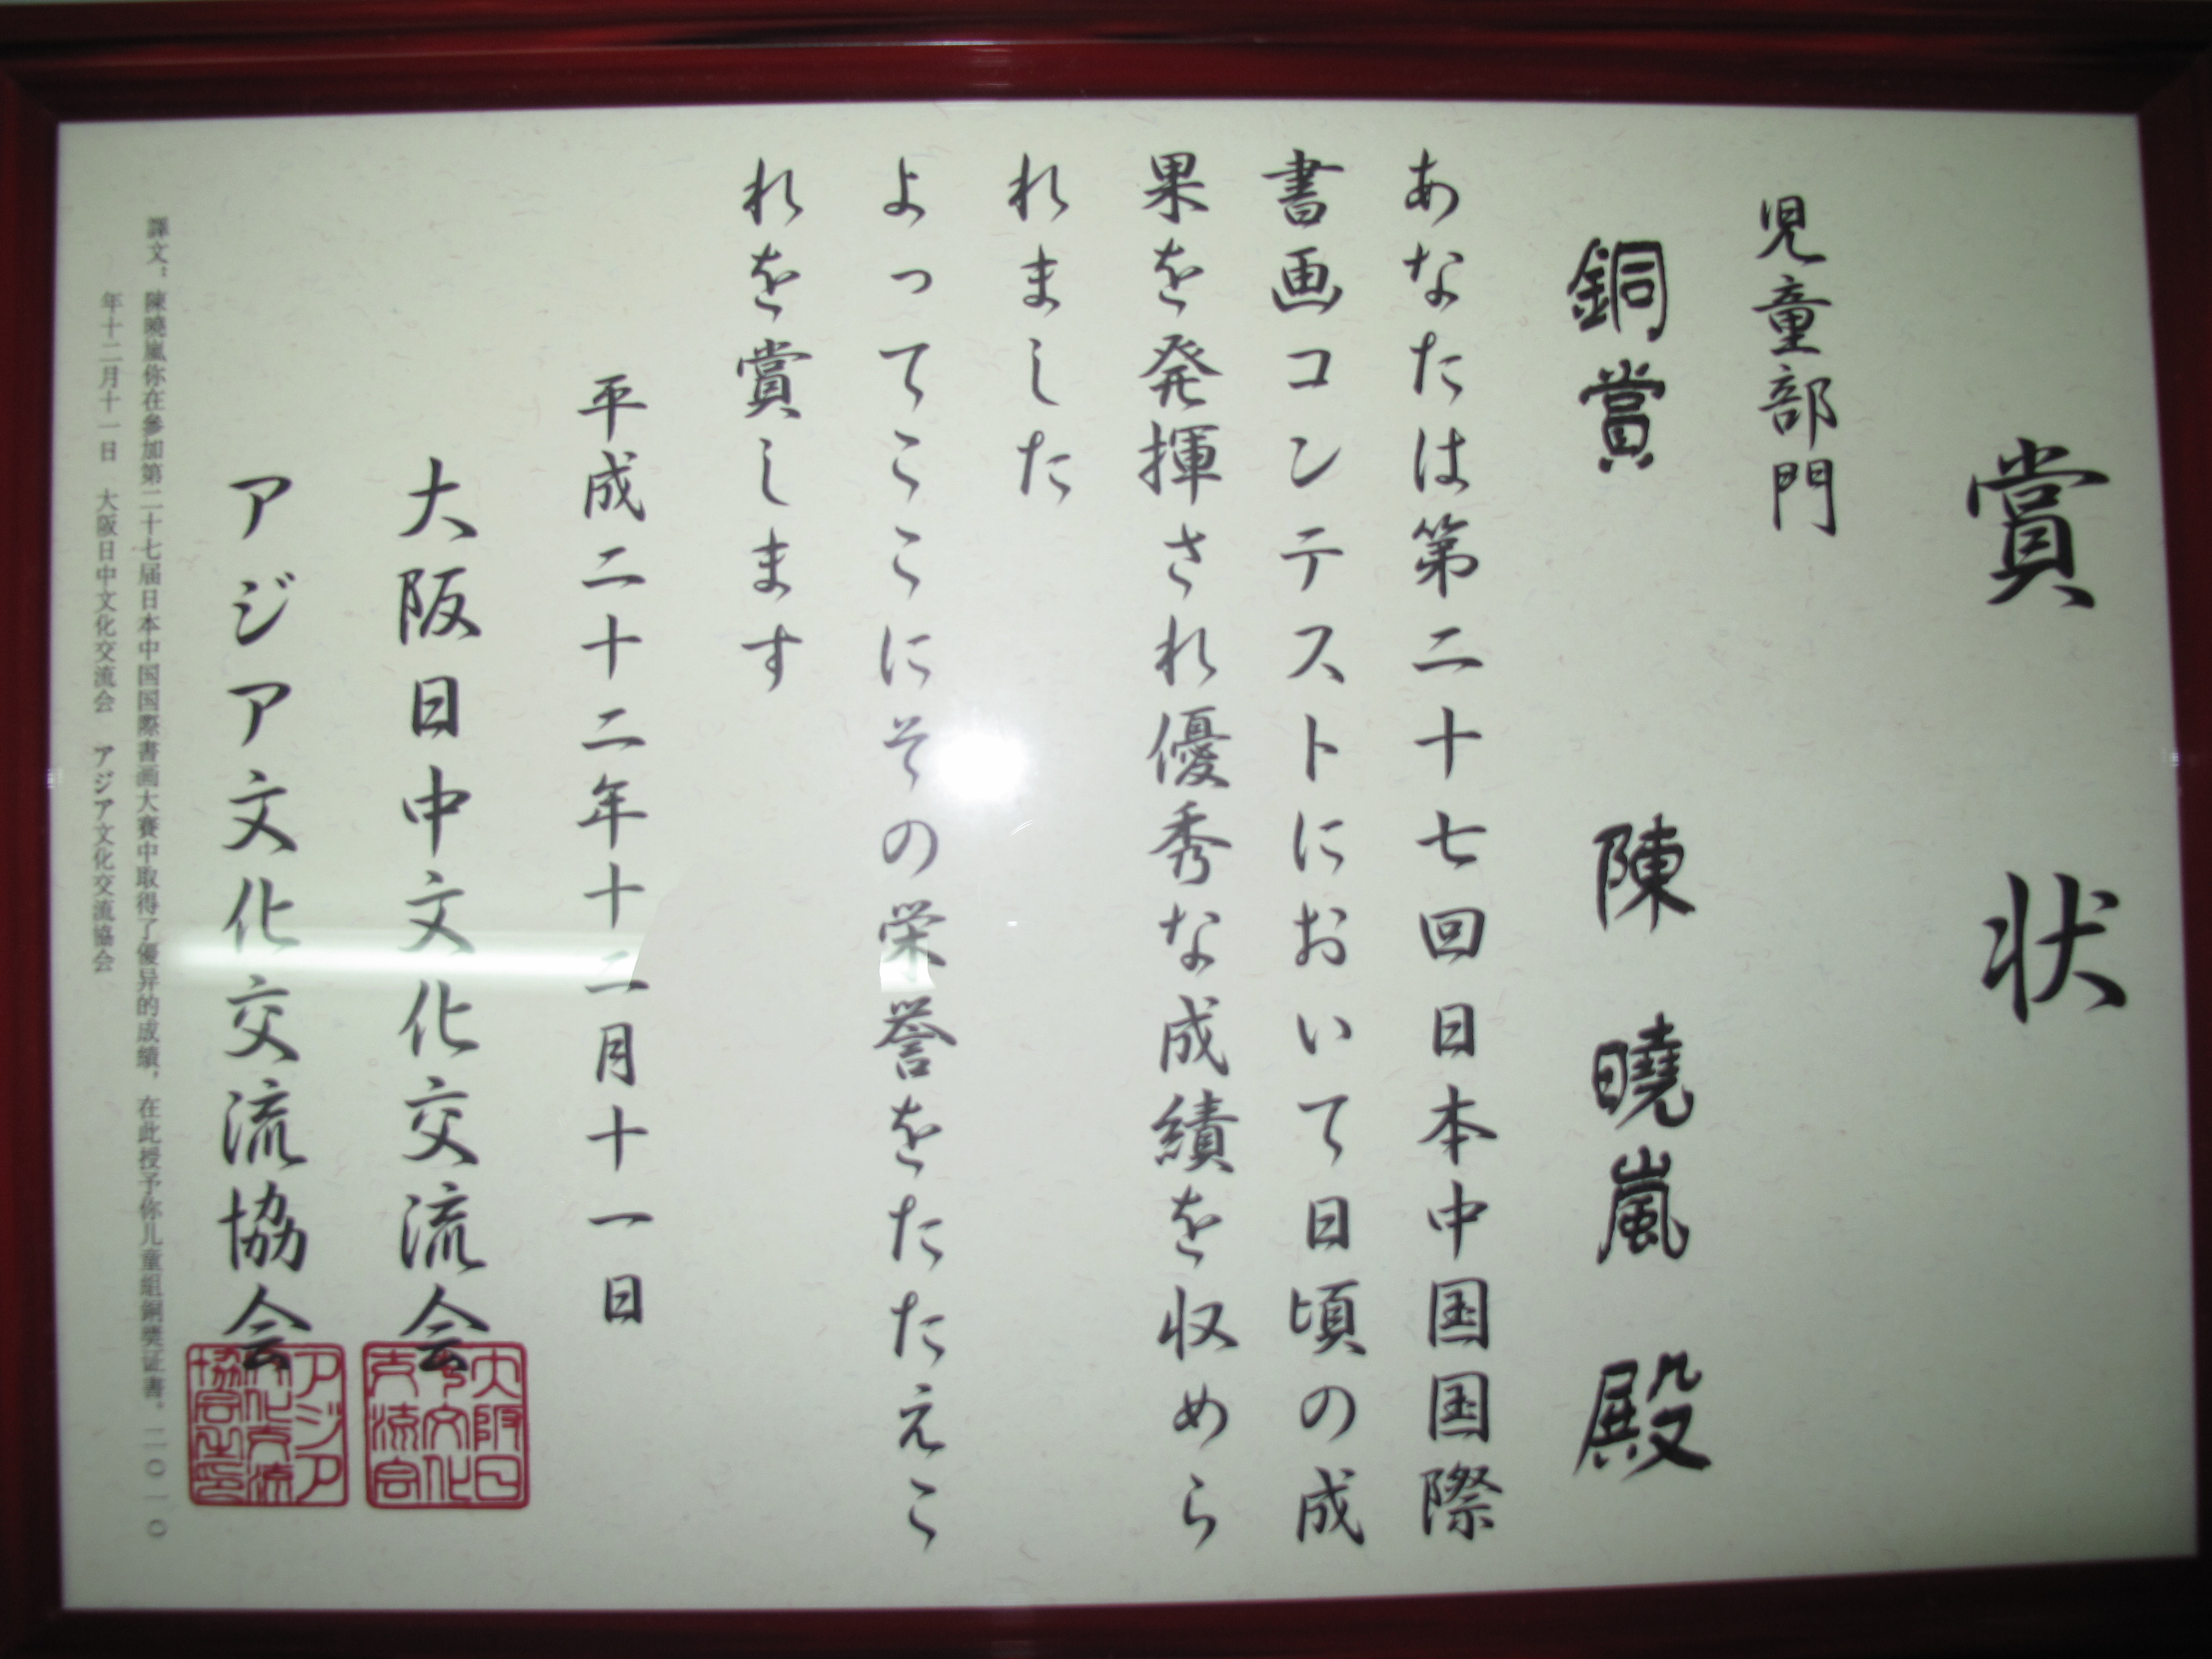 賞状
児童部門
銅賞 陳 曉嵐 殿
あなたは第二十七回日本中国国際
書画コンテストにおいて日頃の成
果を発揮され優秀な成績を収めら
れました
よってここにその栄誉をたたえこ
れを賞します
平成二十二年十二月十一日
大阪日中文化交流会
アジア文化交流協会
譯文：陳曉嵐你在參加第二十七届日本中国国際書画大賽中取得了優异的成績，在此授予你儿童組銅奬证書。二〇一〇
年十二月十一日 大阪日中文化交流会 アジア文化交流協会